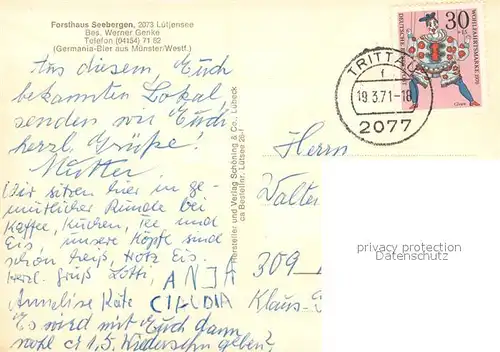 Forsthaus Seebergen, 2073 Lütjensee
Bes. Werner Genke
Telefon (04154) 71 82
(Germania-Bier aus Münster/Westf.)
Aus diesem, Euch
bekannten Lokal,
senden wir Euch
herzl. Grüße!
Mutter.
Wir sitzen hier in ge-
mütlicher Runde bei
Kaffee, Kuchen, Tee und
Eis, unsere Köpfe sind
schon heiß, trotz Eis.
Herzl. Gruß Lotti,
ANJA
Annelise Käte CLAUDIA
Es wird mit Euch dann
wohl 1,5. Wiedersehn geben?
Hersteller und Verlag Schöning & Co., Lübeck
Bestellnr. Lütsee
DEUTSCHE
30
WOHLFAHRTSMARKE 1970
TRITTAU
19.3.71-18
2077
Herrn
Walter
309
Klaus-
privacy protection
Datenschutz